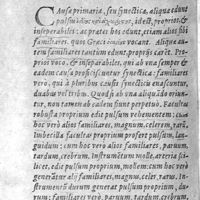 Causæ primariæ, seu synecticæ, aliquæ edunt
pulsus idest, proprios, &
inseparabiles: ac præter hos edunt, etiam alios sibi
familiares, quos Græci vocant. Aliquæ au
tem familiares tantùm edunt, proprijs carēt. Pro
prios voco, & inseparabiles, qui vna semper &
eadem causa proficiscuntur synectica: familiares
verò, qui à pluribus causis synecticis enascuntur,
duabus vel tribus. Quòd si ab vna aliqua id oria-
tur, non tamen ab eadem siunt perpetuò. Facultas
robusta proprium edit pulsum vehementem: cum
hoc verò alios familiares, magnum, celerem, rarū,
Imbecilla facultas proprium profert pulsum, langui-
dum: cum hoc verò alios familiares, paruum,
tardum, crebrum, Instrumentum molle, arteria scili-
cet, edit pulsum proprium, mollem: cum hoc verò
generatim alios familiares, magnum, celerem, rarū,
Instrumentū durum generat pulsum proprium, du-
rum, cum quo alios familiares, paruum, tardum,